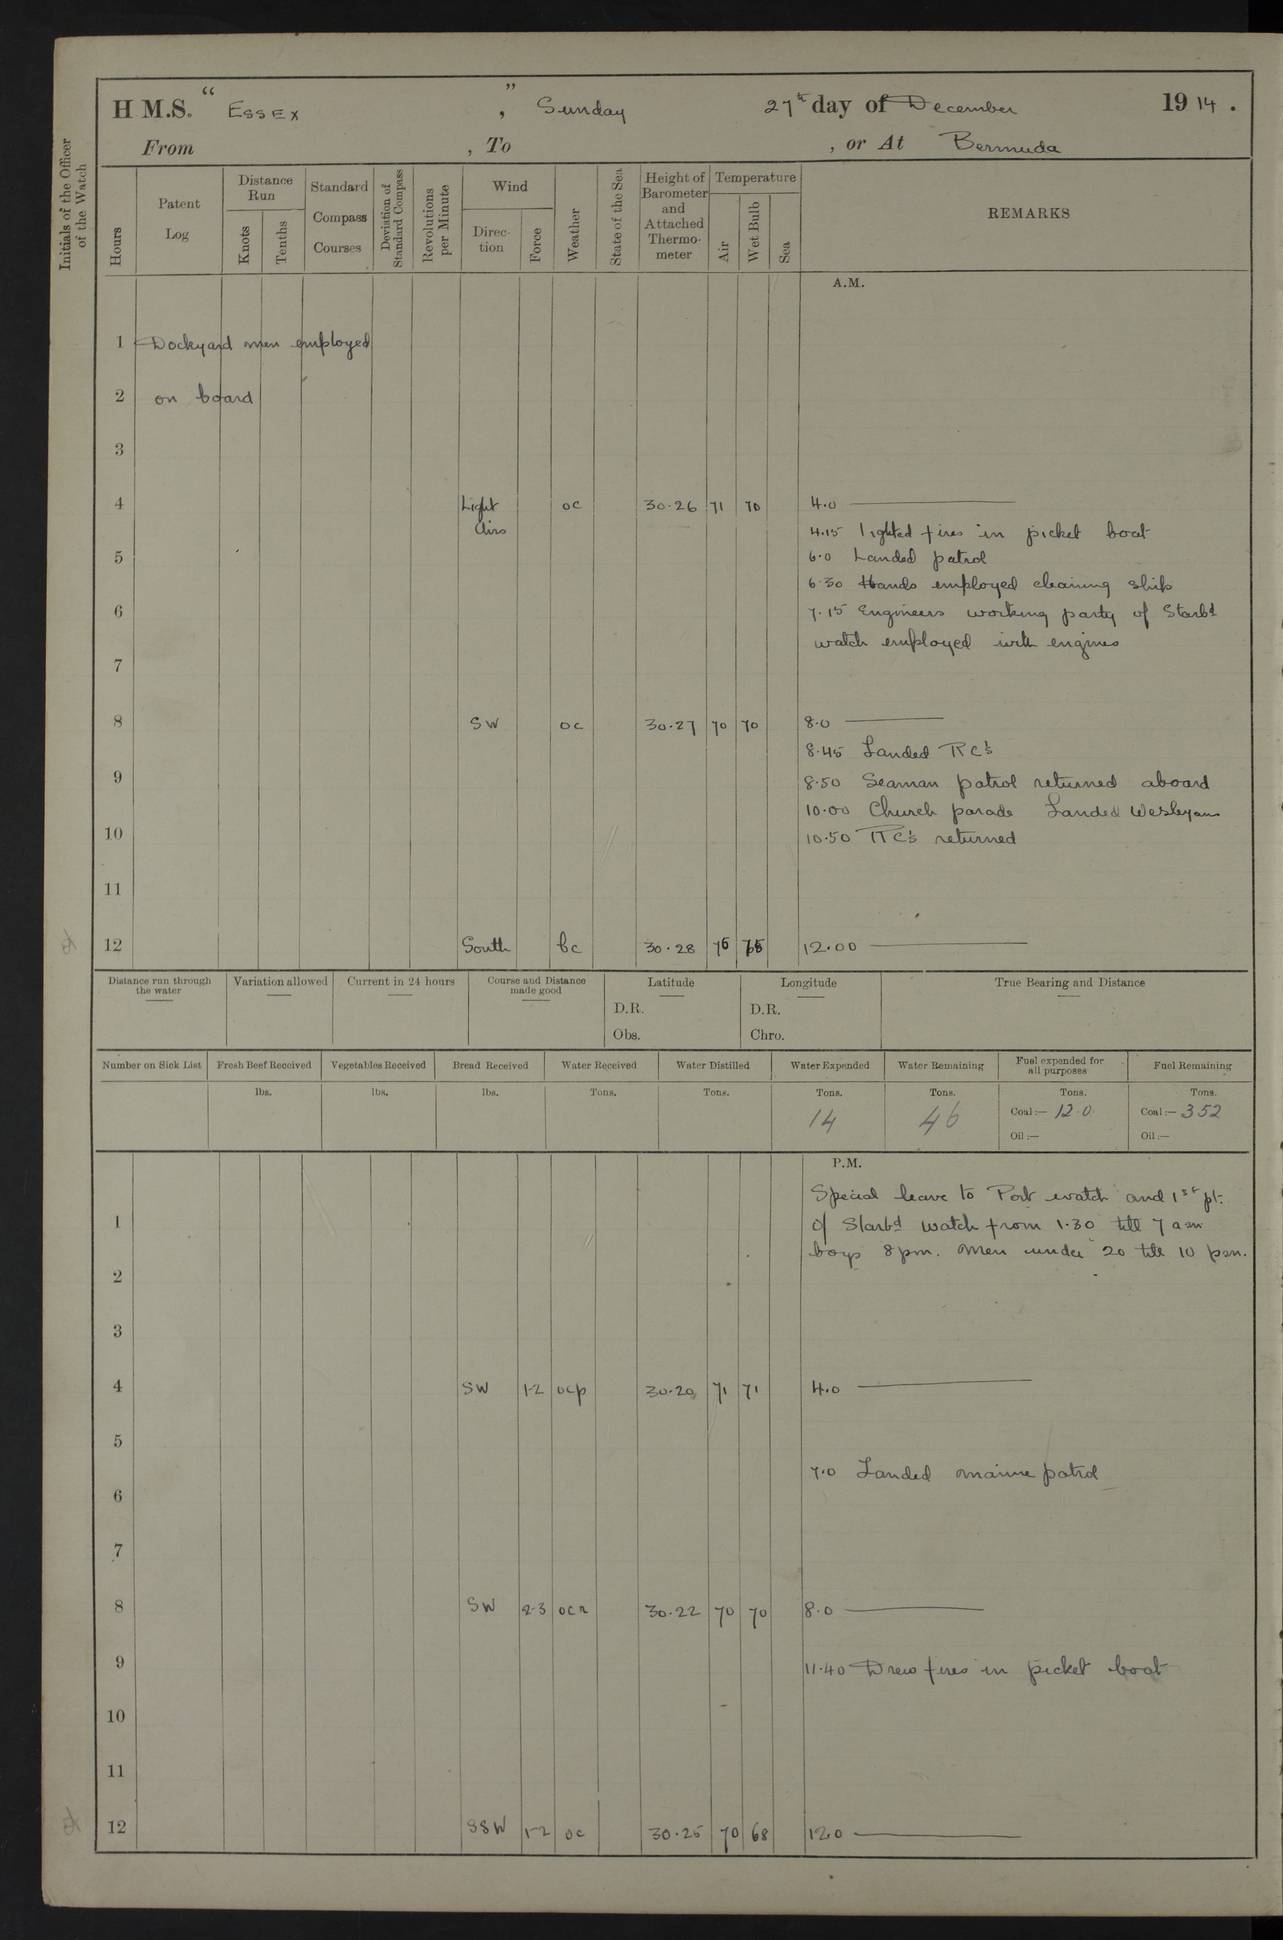 H M.S. " Essex ", Sunday 27th day of December 1914.
From , To , or At Bermuda
Initials of the Officer of the Watch
Hours
Patent Log
Distance Run
Knots
Tenths
Standard Compass Courses
Deviation of Standard Compass
Revolutions per Minute
Wind
Direction
Force
Weather
State of the Sea
Height of Barometer and Attached Thermometer
Temperature
Air
Wet Bulb
Sea
REMARKS
A.M.
1 Dockyard men employed
2 on board
3
4 Light Airs oc 30.26 71 70 4.0
4.15 lighted fires in picket boat
5
6.0 Landed patrol
6.30 Hands employed cleaning ship
6
7.15 Engineers working party of Starbd
watch employed with engines
7
8 SW oc 30.27 70 70 8.0
8.45 Landed RC's
9
8.50 Seaman patrol returned aboard
10.00 Church parade Landed Wesleyans
10
10.50 RC's returned
11
12 South bc 30.28 76 12.00
Distance run through the water
Variation allowed
Current in 24 hours
Course and Distance made good
Latitude
D.R.
Obs.
Longitude
D.R.
Chro.
True Bearing and Distance
Number on Sick List
Fresh Beef Received
lbs.
Vegetables Received
lbs.
Bread Received
lbs.
Water Received
Tons.
Water Distilled
Tons.
Water Expended
Tons.
14
Water Remaining
Tons.
46
Fuel expended for all purposes
Tons.
Coal:— 12.0
Oil:—
Fuel Remaining
Tons.
Coal:— 352
Oil:—
P.M.
Special leave to Port watch and 1st pt.
1 of Starbd watch from 1.30 till 7 am
boys 8 pm. Men under 20 till 10 pm.
2
3
4 SW 1-2 ocp 30.20 71 71 4.0
5
7.0 Landed marine patrol
6
7
8 SW 2-3 ocr 30.22 70 70 8.0
9 11.40 Drew fires in picket boat
10
11
12 SSW 1-2 oc 30.25 70 68 12.0